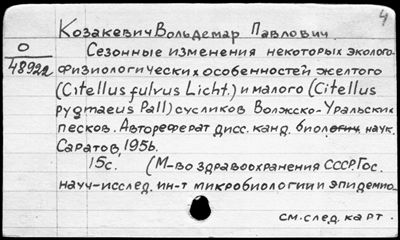 4
Козакевич Вольдемар Павлович.
О
48922
Сезонные изменения некоторых эколого-
физиологических особенностей желтого
(Citellus fulvus Licht.) и малого (Citellus
pygmaeus Pall) сусликов Волжско-Уральских
песков. Автореферат дисс. канд. биологич. наук.
Саратов, 1956.
15с. (М-во здравоохранения СССР. Гос.
науч-исслед. ин-т микробиологии и эпидемио
см. след. карт.